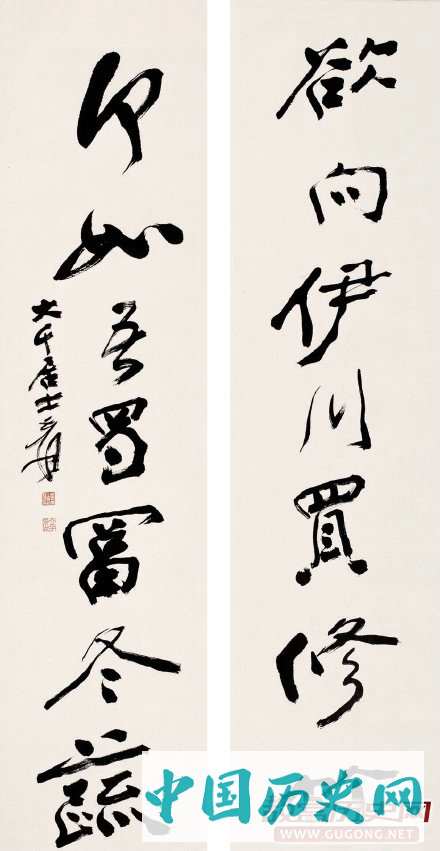 欲向伊川買修
如吾蜀富冬蔬
大千居士爰
中国历史网
WWW.GUGONG.NET